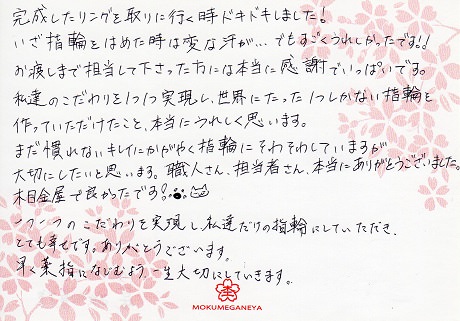 完成したリングを取りに行く時ドキドキしました!
いざ指輪をはめた時は変な汗が…でもすごくうれしかったです!!
お渡しまで担当して下さった方には本当に感謝でいっぱいです。
私達のこだわりを1つ1つ実現し、世界にたった1つしかない指輪を
作っていただけたこと、本当にうれしく思います。
まだ慣れないキレイにかがやく指輪にそわそわしていますが
大切にしたいと思います。職人さん、担当者さん、本当にありがとうございました。
木目金屋で良かったです!
一つ一つのこだわりを実現し私達だけの指輪にしていただき、
とても幸せです。ありがとうございます。
早く薬指になじむよう一生大切にしていきます。
MOKUMEGANEYA